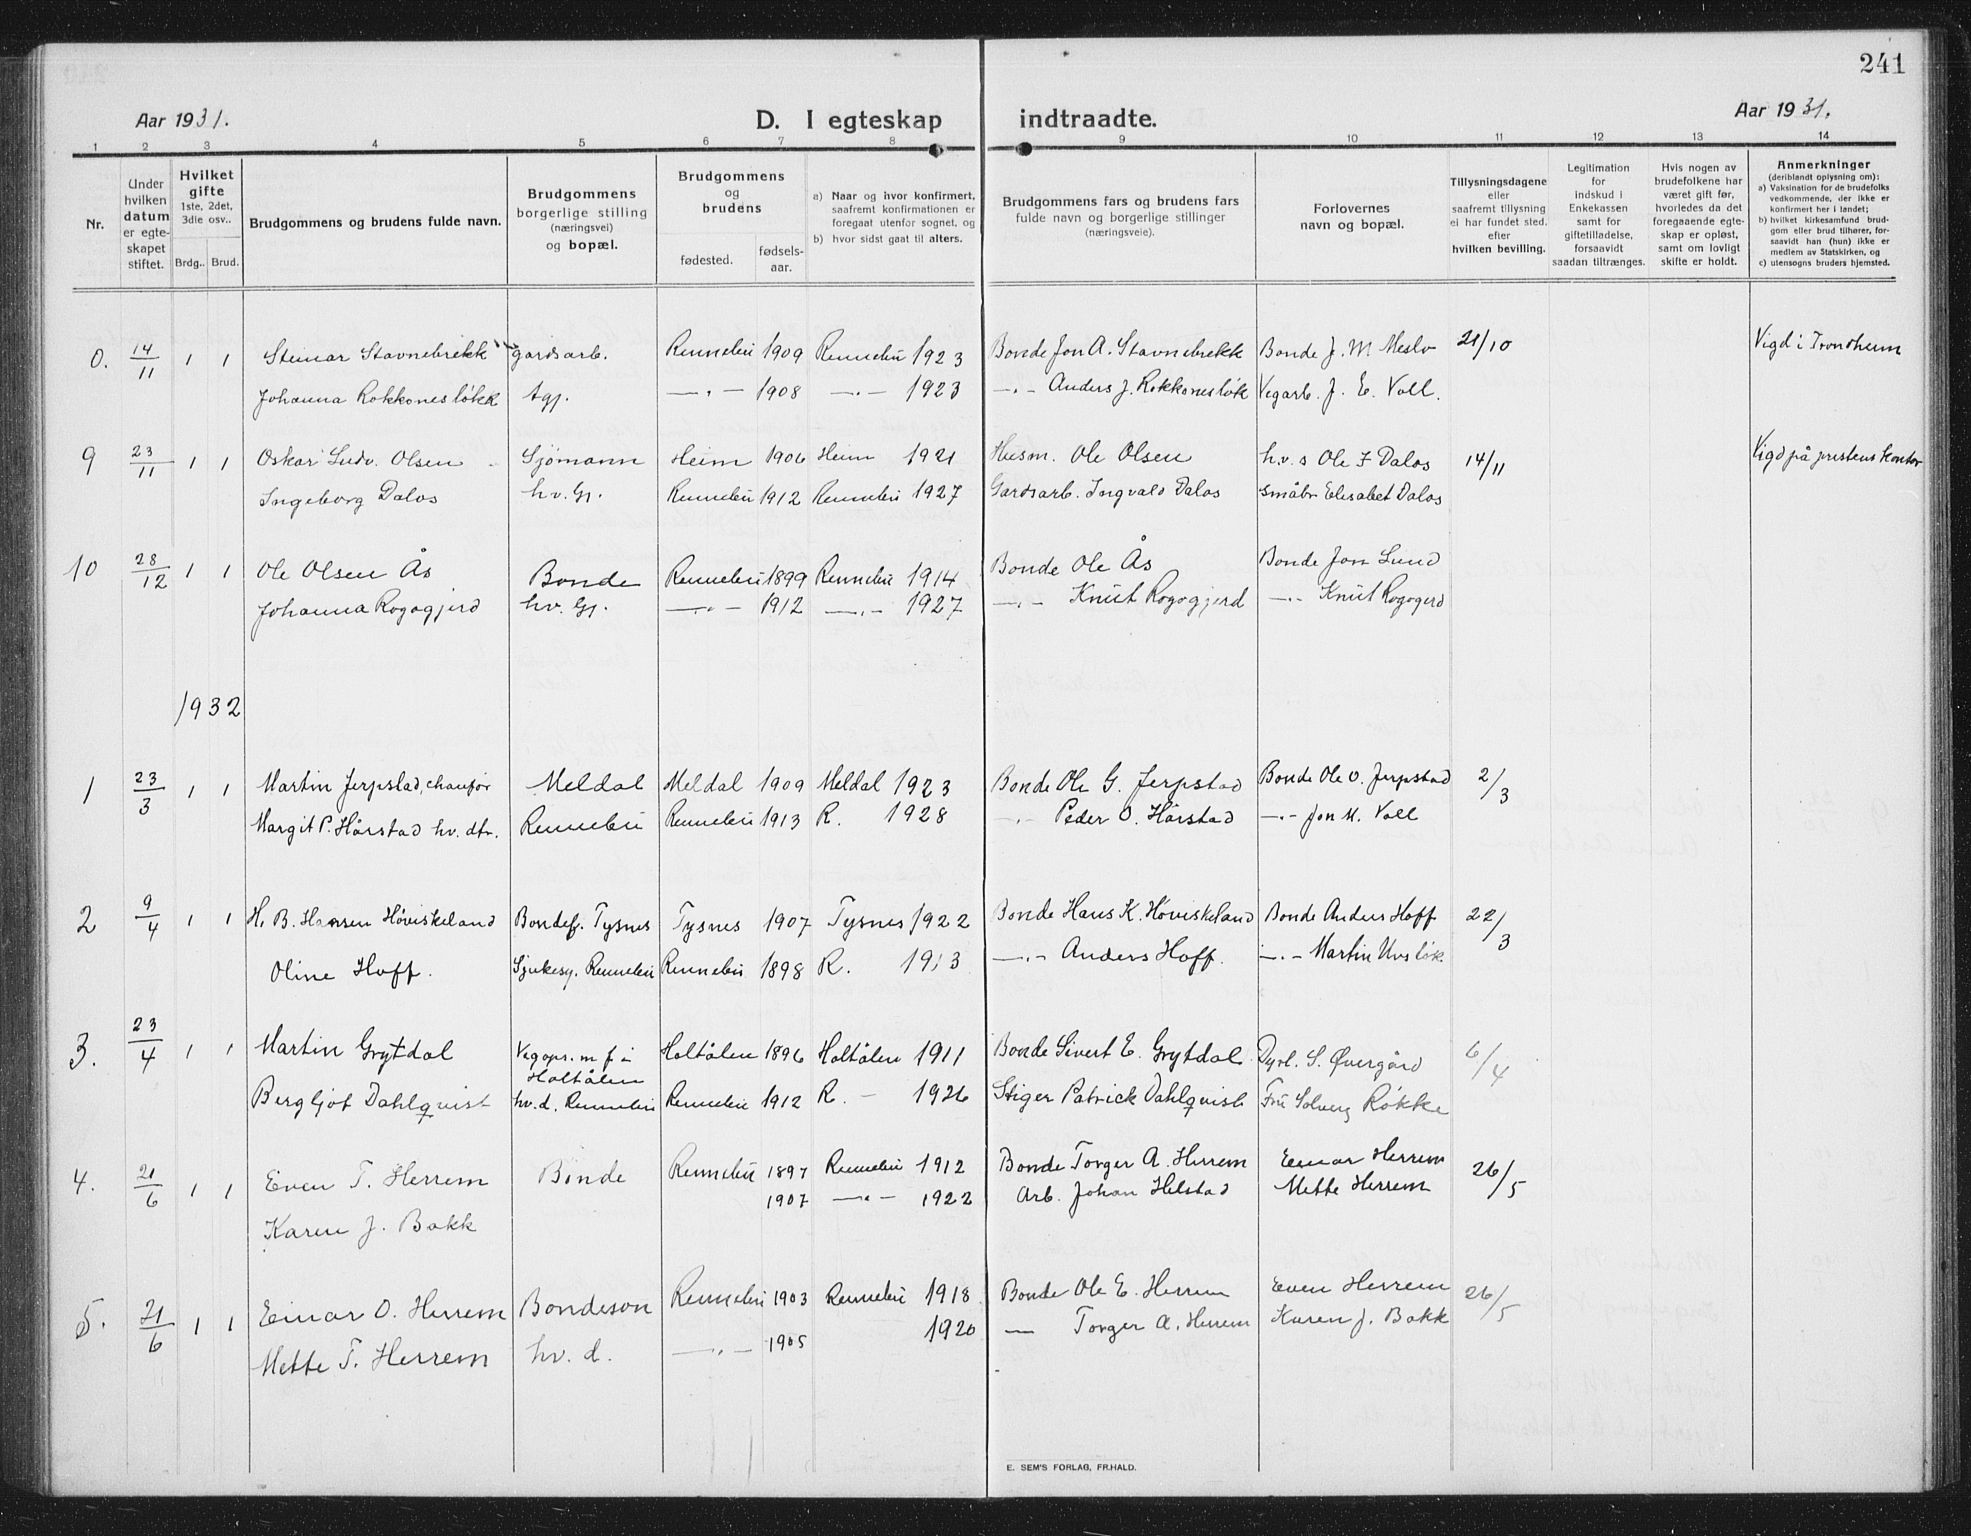 241
Aar 1931.
D. I egteskap indtraadte.
Aar 1931.
1 2 3 4 5 6 7 8 9 10 11 12 13 14
Nr.
Under hvilken datum er egteskapet stiftet.
Hvilket gifte 1ste, 2det, 3die osv..
Brdg.. Brud.
Brudgommens og brudens fulde navn.
Brudgommens borgerlige stilling (næringsvei) og bopæl.
Brudgommens og brudens
fødested. fødselsaar.
a) Naar og hvor konfirmert, saafremt konfirmationen er foregaat utenfor sognet, og
b) hvor sidst gaat til alters.
Brudgommens fars og brudens fars fulde navn og borgerlige stillinger (næringsveie).
Forlovernes navn og bopæl.
Tillysningsdagene eller saafremt tillysning ei har fundet sted. efter hvilken bevilling.
Legitimation for indskud i Enkekassen samt for giftetilladelse, forsaavidt saadan tiltrænges.
Hvis nogen av brudefolkene har været gift før, hvorledes da det foregaaende egteskap er opløst, samt om lovligt skifte er holdt.
Anmerkninger (deriblandt oplysning om):
a) Vaksination for de brudefolks vedkommende, der ikke er konfirmert her i landet;
b) hvilket kirkesamfund brudgom eller brud tilhører, forsaavidt han (hun) ikke er medlem av Statskirken, og
c) utensogns bruders hjemsted.
0. 14/11 1 1 Steinar Stavnebrekk gardsarb. Rennebu 1909 Rennebu 1923 Bonde Jon A. Stavnebrekk Bonde J. M Meslo 21/10 Vigd i Trondheim
Johanna Rokkonesløkk tgj. —"— 1908 —"— 1923 —"— Anders J. Rokkonesløk Vegarb. J. E. Voll.
9 23/11 1 1 Oskar Ludv. Olsen Sjømann Heim 1906 Heim 1921 Husm. Ole Olsen h.v.s Ole I Dalos 14/11 Vigd på prestens kontor
Ingeborg Dalos hv. Gj. Rennebu 1912 Rennebu 1927 Gardsarb. Ingvald Dalos småbr Elisabet Dalos
10 28/12 1 1 Ole Olsen Ås Bonde Rennebu 1899 Rennebu 1914 Bonde Ole Ås Bonde Jon Lund
Johanna Rogogjerd hv. Gj. —"— 1912 —"— 1927 —"— Knut Rogogjerd —"— Knut Rogogerd
1932
1 23/3 1 1 Martin Jerpstad, chauför Meldal Meldal 1909 Meldal 1923 Bonde Ole G. Jerpstad Bonde Ole O. Jerpstad 2/3
Margit P. Hårstad hv. dtr. Rennebu Rennebu 1913 R. 1928 —"— Peder O. Hårstad —"— Jon M. Voll
2 9/4 1 1 H. B. Hansen Høviskeland Bondef. Tysnes Tysnes 1907 Tysnes 1922 Bonde Hans K. Høviskeland Bonde Anders Hoff 22/3
Oline Hoff. Sjukesy. Rennebu Rennebu 1898 R. 1913 —"— Anders Hoff. —"— Martin Uvsløk.
3. 23/4 1 1 Martin Grytdal Vegops.m f i Holtålen Holtålen 1896 Holtålen 1911 Bonde Sivert E. Grytdal Dyrl. S. Øvergård 6/4
Bergljot Dahlqvist hv.d. Rennebu Rennebu 1912 R. — 1926 Stiger Patrick Dahlqvist Fru Solveig Røkke
4. 21/6 1 1 Even T. Herrem Bonde Rennebu 1897 Rennebu 1912 Bonde Torger A. Herrem Einar Herrem 26/5
Karen J. Bakk 1907 —"— 1922 Arb. Johan Helstad Mette Herrem
5. 21/6 1 1 Einar O. Herrem Bondeson Rennebu 1903 Rennebu 1918 Bonde Ole E. Herrem Even Herrem 26/5
Mette T. Herrem hv. d. —"— 1905 1920 — Torger A. Herrem Karen J. Bakk
E. SEM'S FORLAG, FR.HALD.